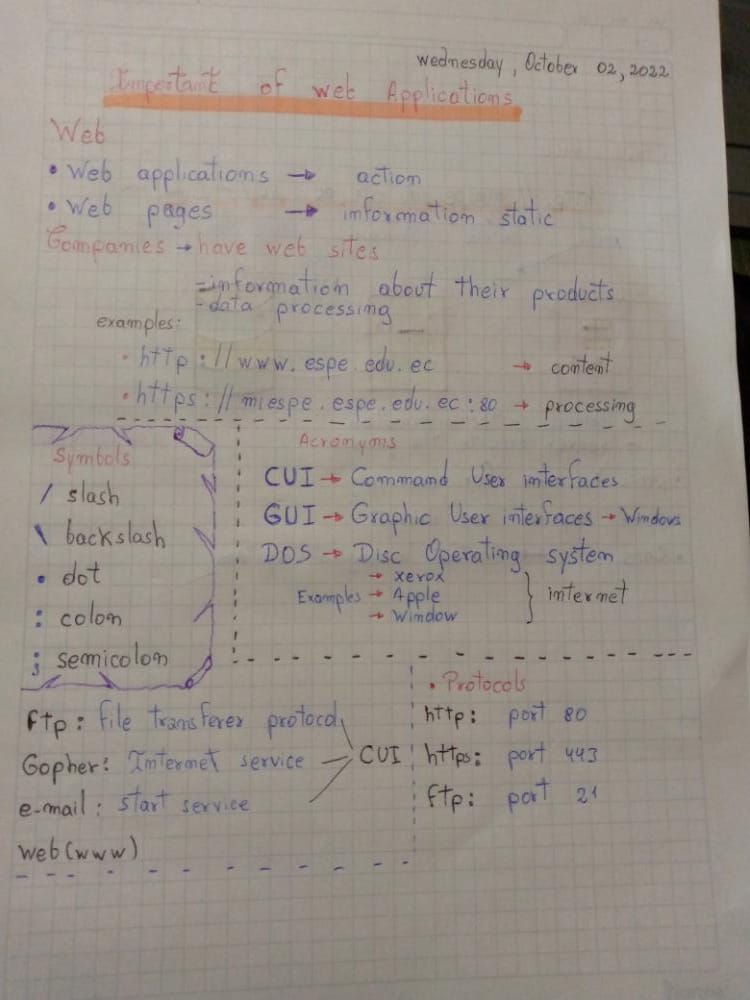 Wednesday, October 02, 2022
Important of web Applications
Web
• Web applications → action
• Web pages → information static
Companies → have web sites
- information about their products
- data processing
examples:
• http://www.espe.edu.ec → content
• https://miespe.espe.edu.ec:80 → processing
Symbols
/ slash
\ backslash
• dot
: colon
; semicolon
Acronyms
CUI → Command User interfaces
GUI → Graphic User interfaces → Windows
DOS → Disc Operating system
Examples → xerox
→ Apple
→ Window
} internet
ftp: file transferer protocol
Gopher: Internet service
e-mail: start service
CUI
web(www)
• Protocols
http: port 80
https: port 443
ftp: port 21